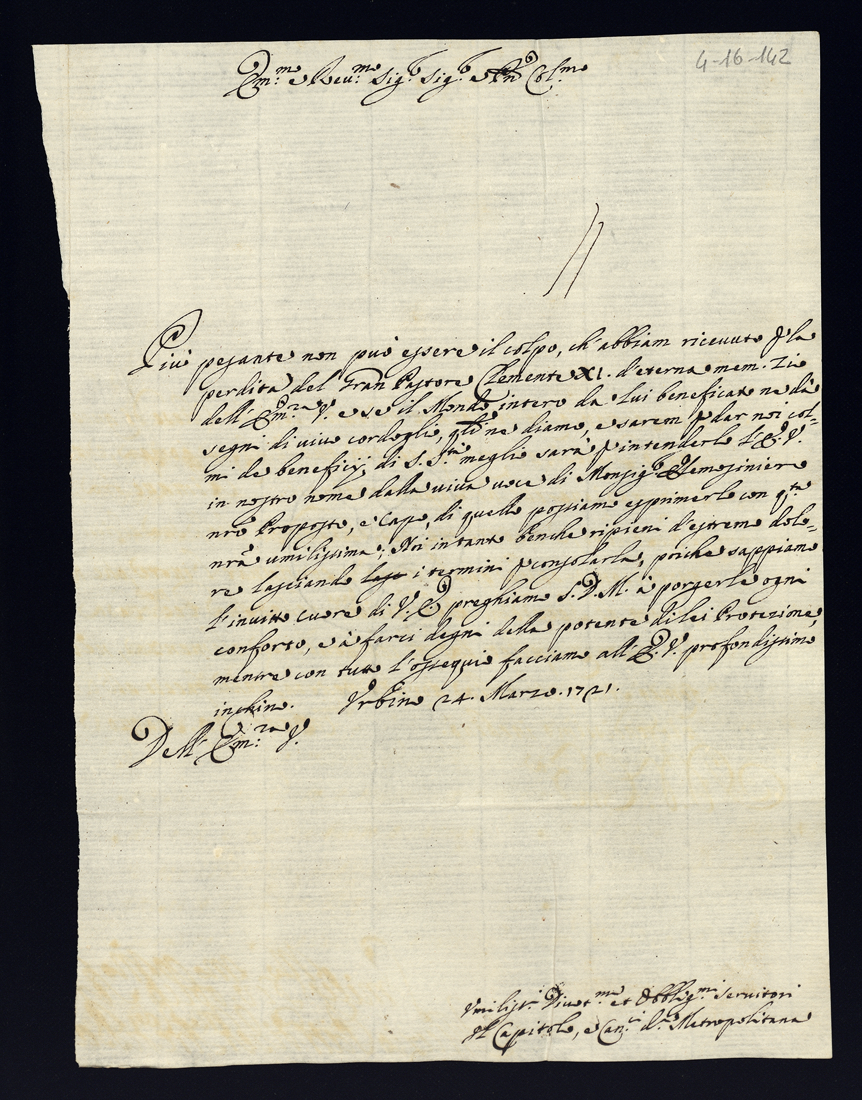 4-16-142
Em.mo e Rev.mo Sig.r Sig.r e Pne Col.mo
Più pesante non può essere il colpo, ch'abbiam ricevuto p la
perdita del Gran Pastore Clemente XI. d'eterna mem. Zio
dell'Em.za V. e se il Mondo intero da lui beneficato ne dà
segni di vivo cordoglio, qli ne diamo, e sarem p dar noi col=
mi de beneficij di S. S.tà meglio sarà p intenderlo l'E. V.
in nostro nome dalla viva voce di Monsig.r Elemosiniere
nrō Proposto, e Capo, di quello possiamo esprimerlo con q.ta
nrā umilissima; Noi intanto benche ripieni d'estremo dolo=
re lasciando i termini p consolarla, poiche sappiamo
l'invitto cuore di V. E. preghiamo S. D. M. à porgerle ogni
conforto, e à farci degni della potente di lei Protezione,
mentre con tutto l'ossequio facciamo all'E. V. profondissimo
inchino. Urbino 24. Marzo. 1721.
Dell'Em.za V.
Umiliss.i Divot.mi et Obblig.mi Servitori
Il Capitolo, e Can.ci d.a Metropolitana